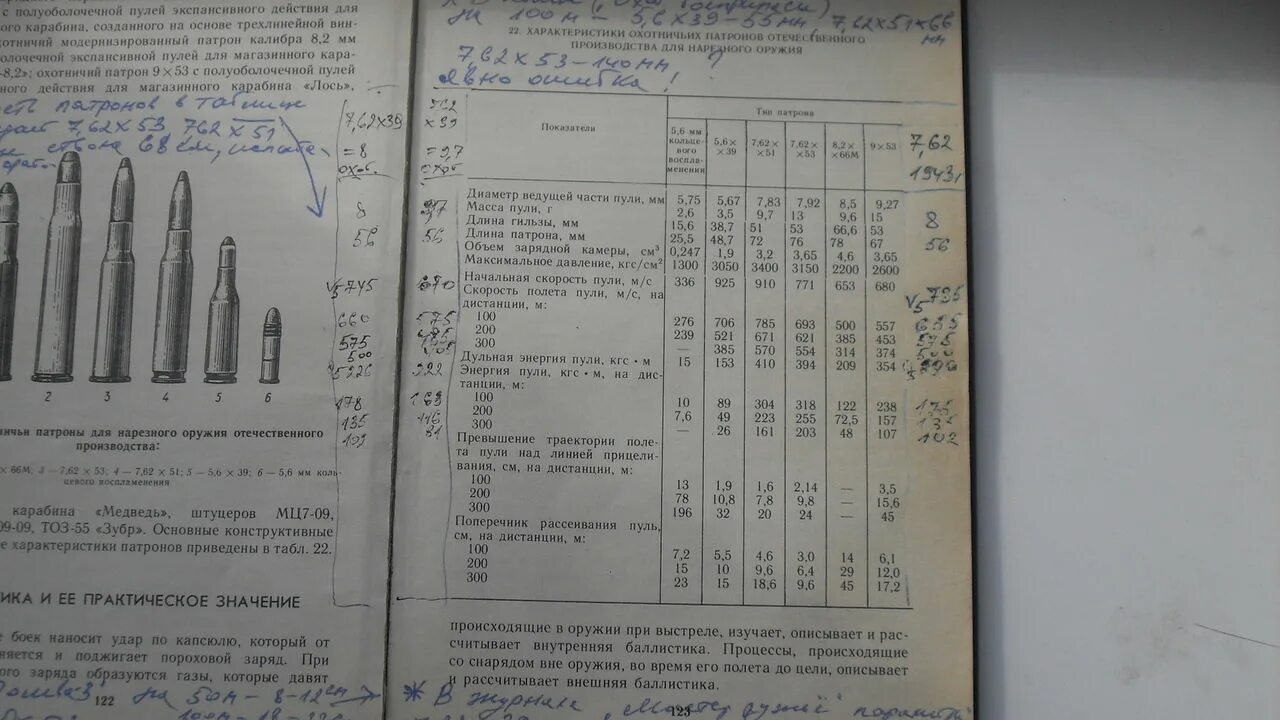 с полуоболочечной пулей экспансивного действия для
карабина, созданного на основе трехлинейной вин-
охотничий модернизированный патрон калибра 8,2 мм
экспансивной пулей для магазинного кара-
8,2»; охотничий патрон 9×53 с полуоболочечной пулей
действия для магазинного карабина «Лось»,
патронов в таблице
7,62×53, 762×51
ствола 68 см,
2 3 4 5 6
патроны для нарезного оружия отечественного
производства:
× 66М, 3 — 7,62 × 53; 4 — 7,62 × 51; 5 — 5,6 × 39; 6 — 5,6 мм коль-
цевого воспламенения
карабина «Медведь», штуцеров МЦ7-09,
09-09, ТОЗ-55 «Зубр». Основные конструктивные
характеристики патронов приведены в табл. 22.
ИКА И ЕЕ ПРАКТИЧЕСКОЕ ЗНАЧЕНИЕ
боек наносит удар по капсюлю, который от
и поджигает пороховой заряд. При
заряда образуются газы, которые давят
122
на 50м – 8-12см
7,62×39
= 8
охот.
8
56
745
660
575
500
226
178
135
102
на 100м – 5,6×39 – 55мм, 7,62×51×66
мм
22. ХАРАКТЕРИСТИКИ ОХОТНИЧЬИХ ПАТРОНОВ ОТЕЧЕСТВЕННОГО
ПРОИЗВОДСТВА ДЛЯ НАРЕЗНОГО ОРУЖИЯ
7,62×53 – 140мм ?
явно ошибка!
762
×39
= 9,7
охот
9,7
56
670
575
222
163
116
81
Показатели
Тип патрона
5,6 мм кольце- вого воспла- менения
5,6× ×39
7,62× ×51
7,62× ×53
8,2× ×66М
9×53
7,62
1943г
Диаметр ведущей части пули, мм 5,75 5,67 7,83 7,92 8,5 9,27
Масса пули, г 2,6 3,5 9,7 13 9,6 15 8
Длина гильзы, мм 15,6 38,7 51 53 66,6 53
Длина патрона, мм 25,5 48,7 72 76 78 67 56
Объем зарядной камеры, см³ 0,247 1,9 3,2 3,65 4,6 3,65
Максимальное давление, кгс/см² 1300 3050 3400 3150 2200 2600
Начальная скорость пули, м/с 336 925 910 771 653 680 735
Скорость полета пули, м/с, на
дистанции, м:
100 276 706 785 693 500 557 655
200 239 521 671 621 385 453 575
300 — 385 570 554 314 374 500
Дульная энергия пули, кгс • м 15 153 410 394 209 354
Энергия пули, кгс • м, на дис-
танции, м:
100 10 89 304 318 122 238 175
200 7,6 49 223 255 72,5 157 135
300 — 26 161 203 48 107 102
Превышение траектории поле-
та пули над линией прицели-
вания, см, на дистанции, м:
100 13 1,9 1,6 2,14 — 3,5
200 78 10,8 7,8 9,8 — 15,6
300 196 32 20 24 — 45
Поперечник рассеивания пуль,
см, на дистанции, м:
100 7,2 5,5 4,6 3,0 14 6,1
200 15 10 9,6 6,4 29 12,0
300 23 15 18,6 9,6 45 17,2
происходящие в оружии при выстреле, изучает, описывает и рас-
считывает внутренняя баллистика. Процессы, происходящие
со снарядом вне оружия, во время его полета до цели, описывает
и рассчитывает внешняя баллистика.
123
* В журнале „Мастер ружьё"